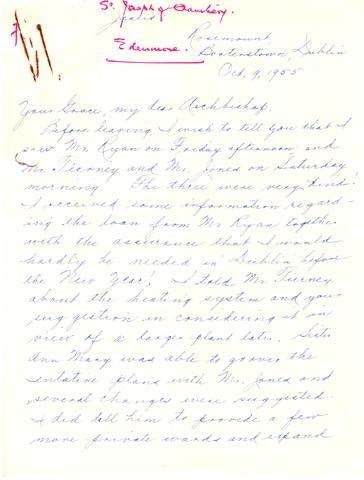 St. Joseph of Chambéry.
Edenmore.
Rosemount,
Booterstown, Dublin
Oct. 9, 1955
Your Grace, my dear Archbishop,
Before leaving I wish to tell you that I
saw Mr. Ryan on Friday afternoon and
Mr. Tierney and Mr. Jones on Saturday
morning. The three were very kind!
I received some information regard-
ing the loan from Mr Ryan together
with the assurance that I would
hardly be needed in Dublin before
the New Year. I told Mr. Tierney
about the heating system and your
suggestion in considering it in
view of a larger plant later. Sister
Ann Mary was able to go over the
tentative plans with Mr. Jones and
several changes were suggested.
I did tell him to provide a few
more private wards and expand